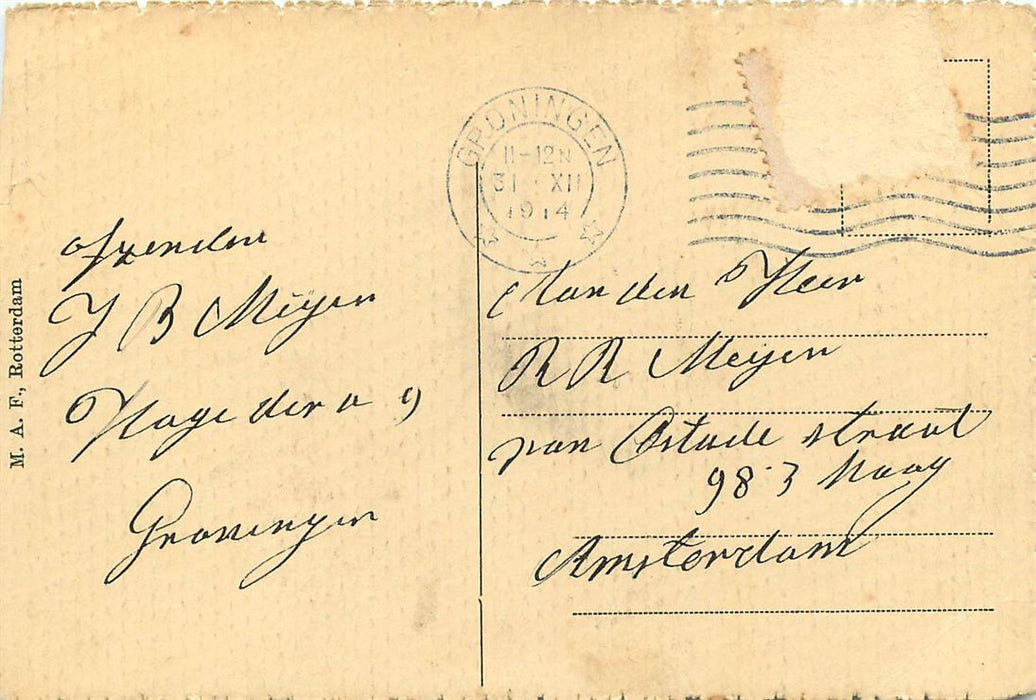 GRONINGEN
11-12N
31 XII
1914
afzender
J B Meijer
Groningen
Aan den Heer
R R Meijer
van Ostade straat
98 3 Hoog
Amsterdam
M. A. F., Rotterdam